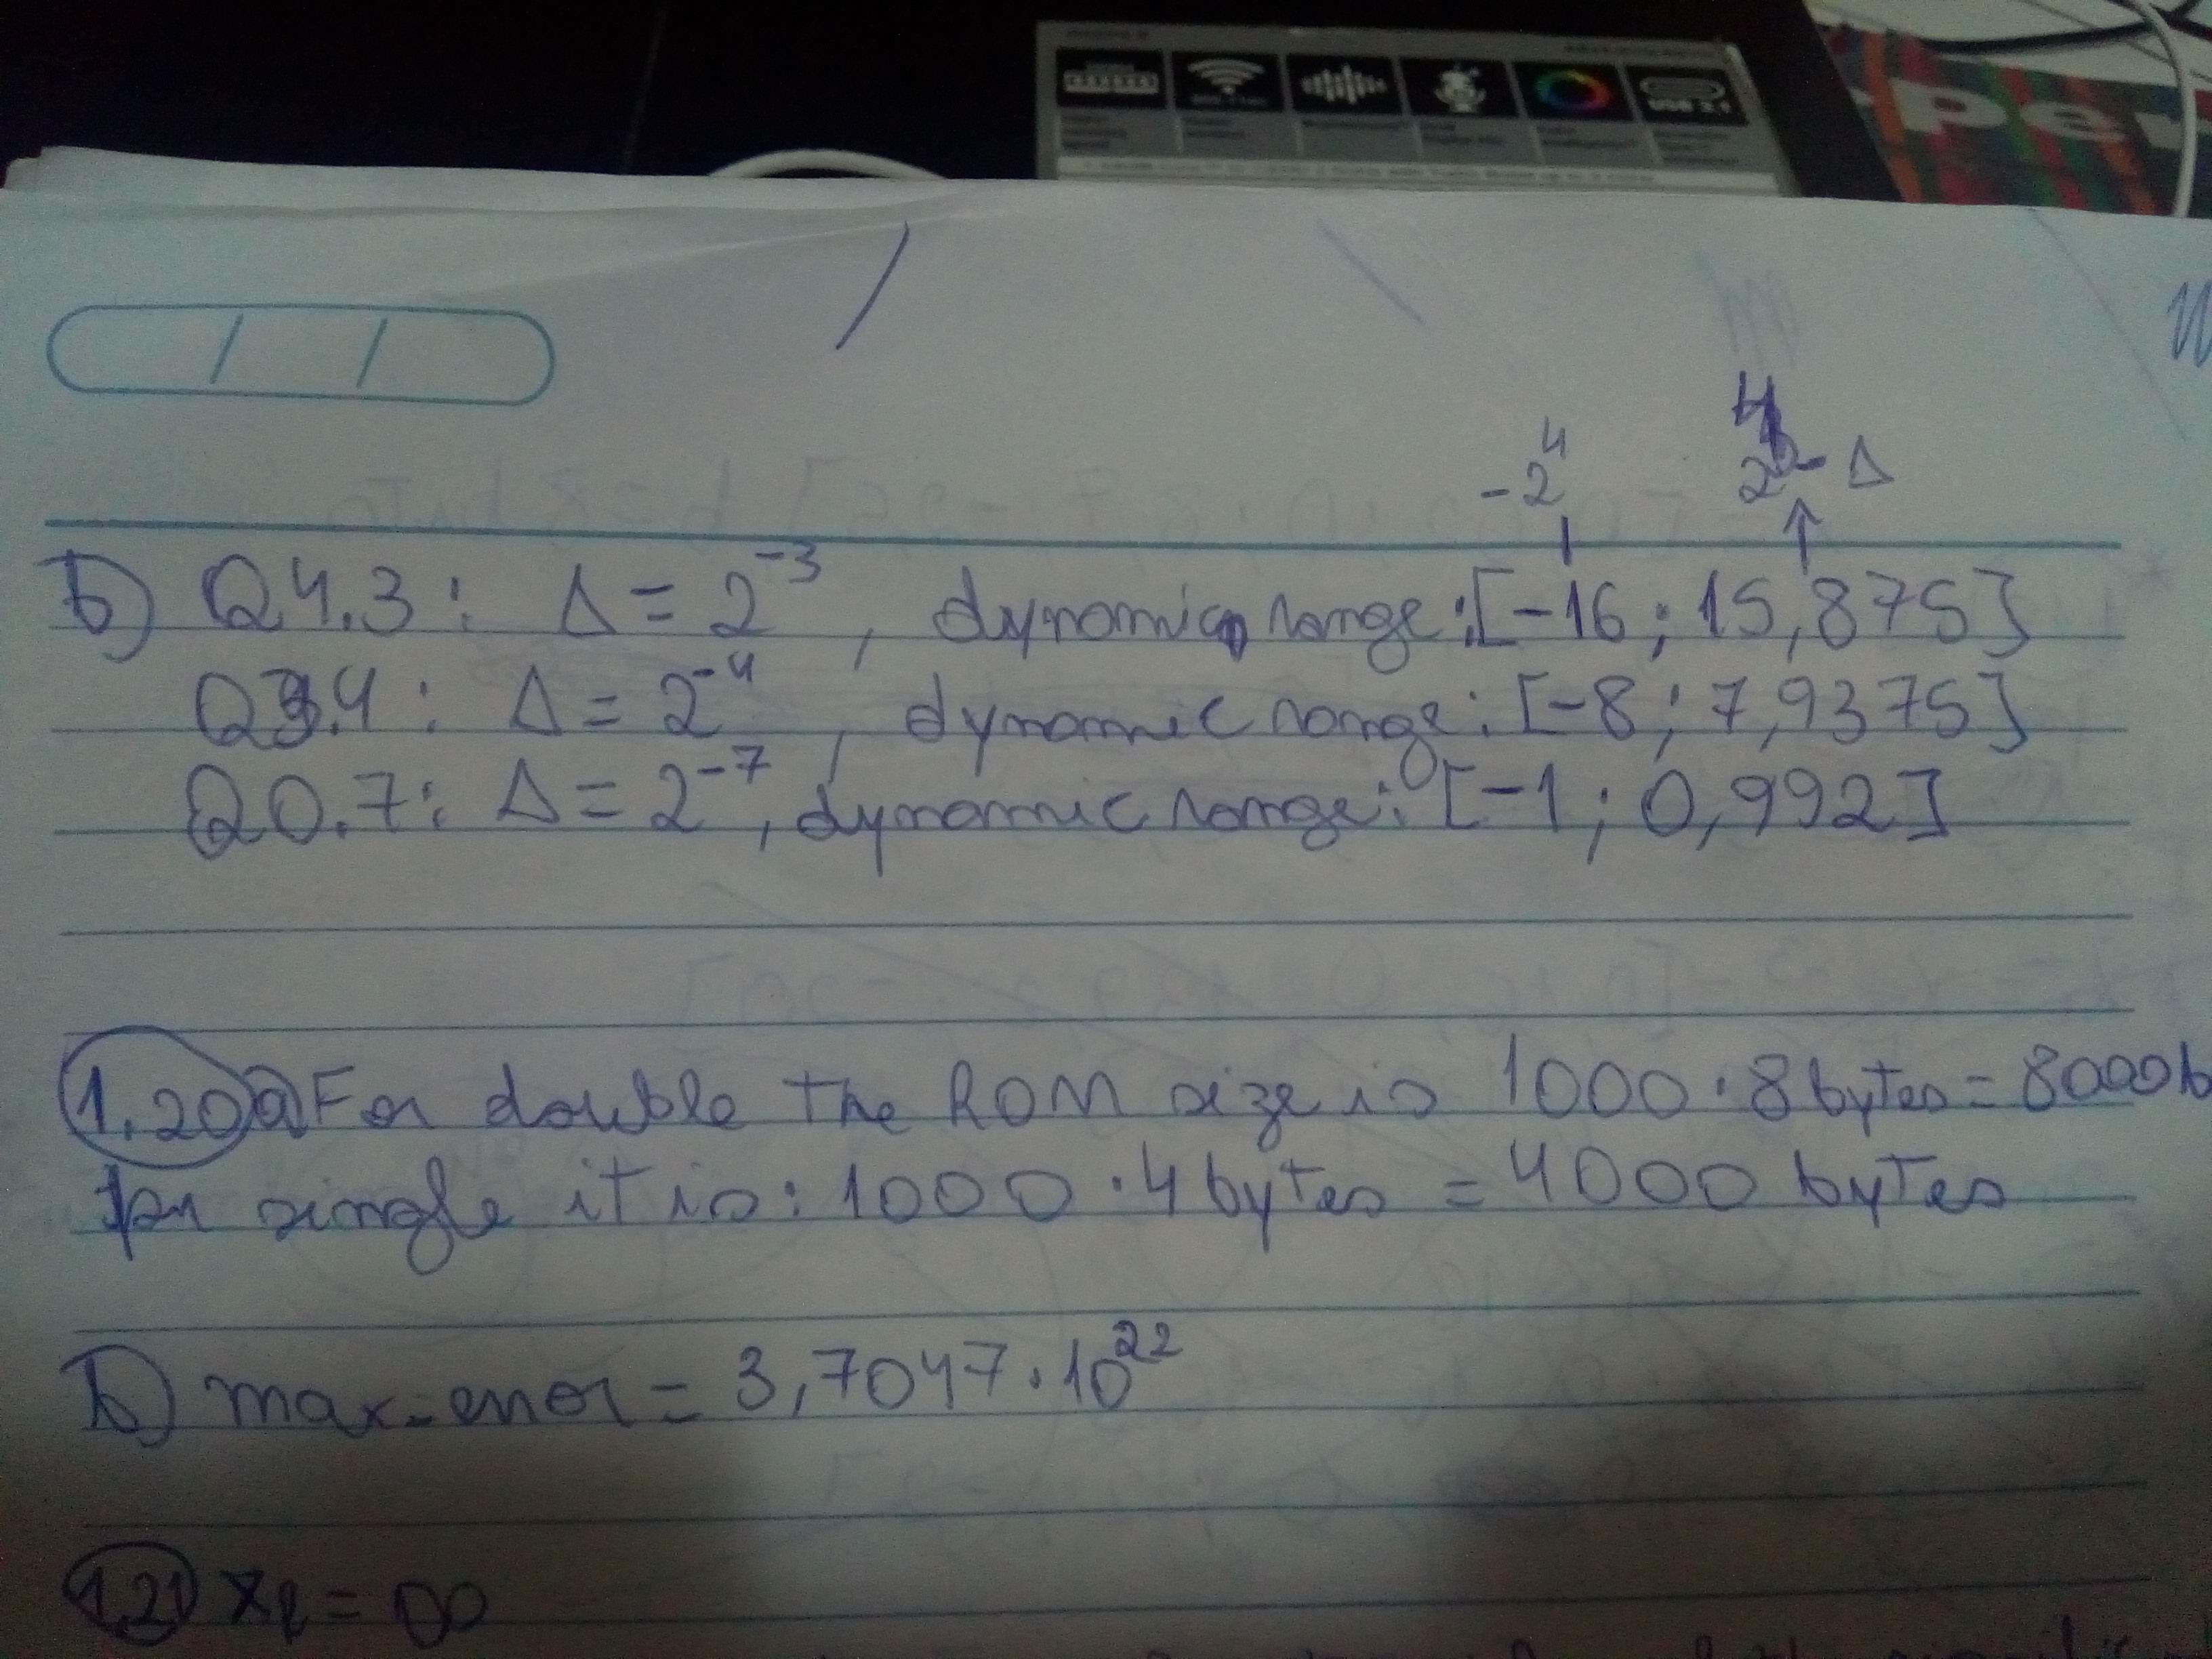 USB 2.1
per
-2⁴ 2⁴-Δ
b) Q4.3: Δ = 2⁻³, dynamic range: [-16; 15,875]
Q3.4: Δ = 2⁻⁴, dynamic range: [-8; 7,9375]
Q0.7: Δ = 2⁻⁷, dynamic range: [-1; 0,992]
1.20 a) For double the ROM size is 1000·8 bytes = 8000 b
for single it is: 1000·4 bytes = 4000 bytes
b) max-error = 3,7047·10²²
1.21